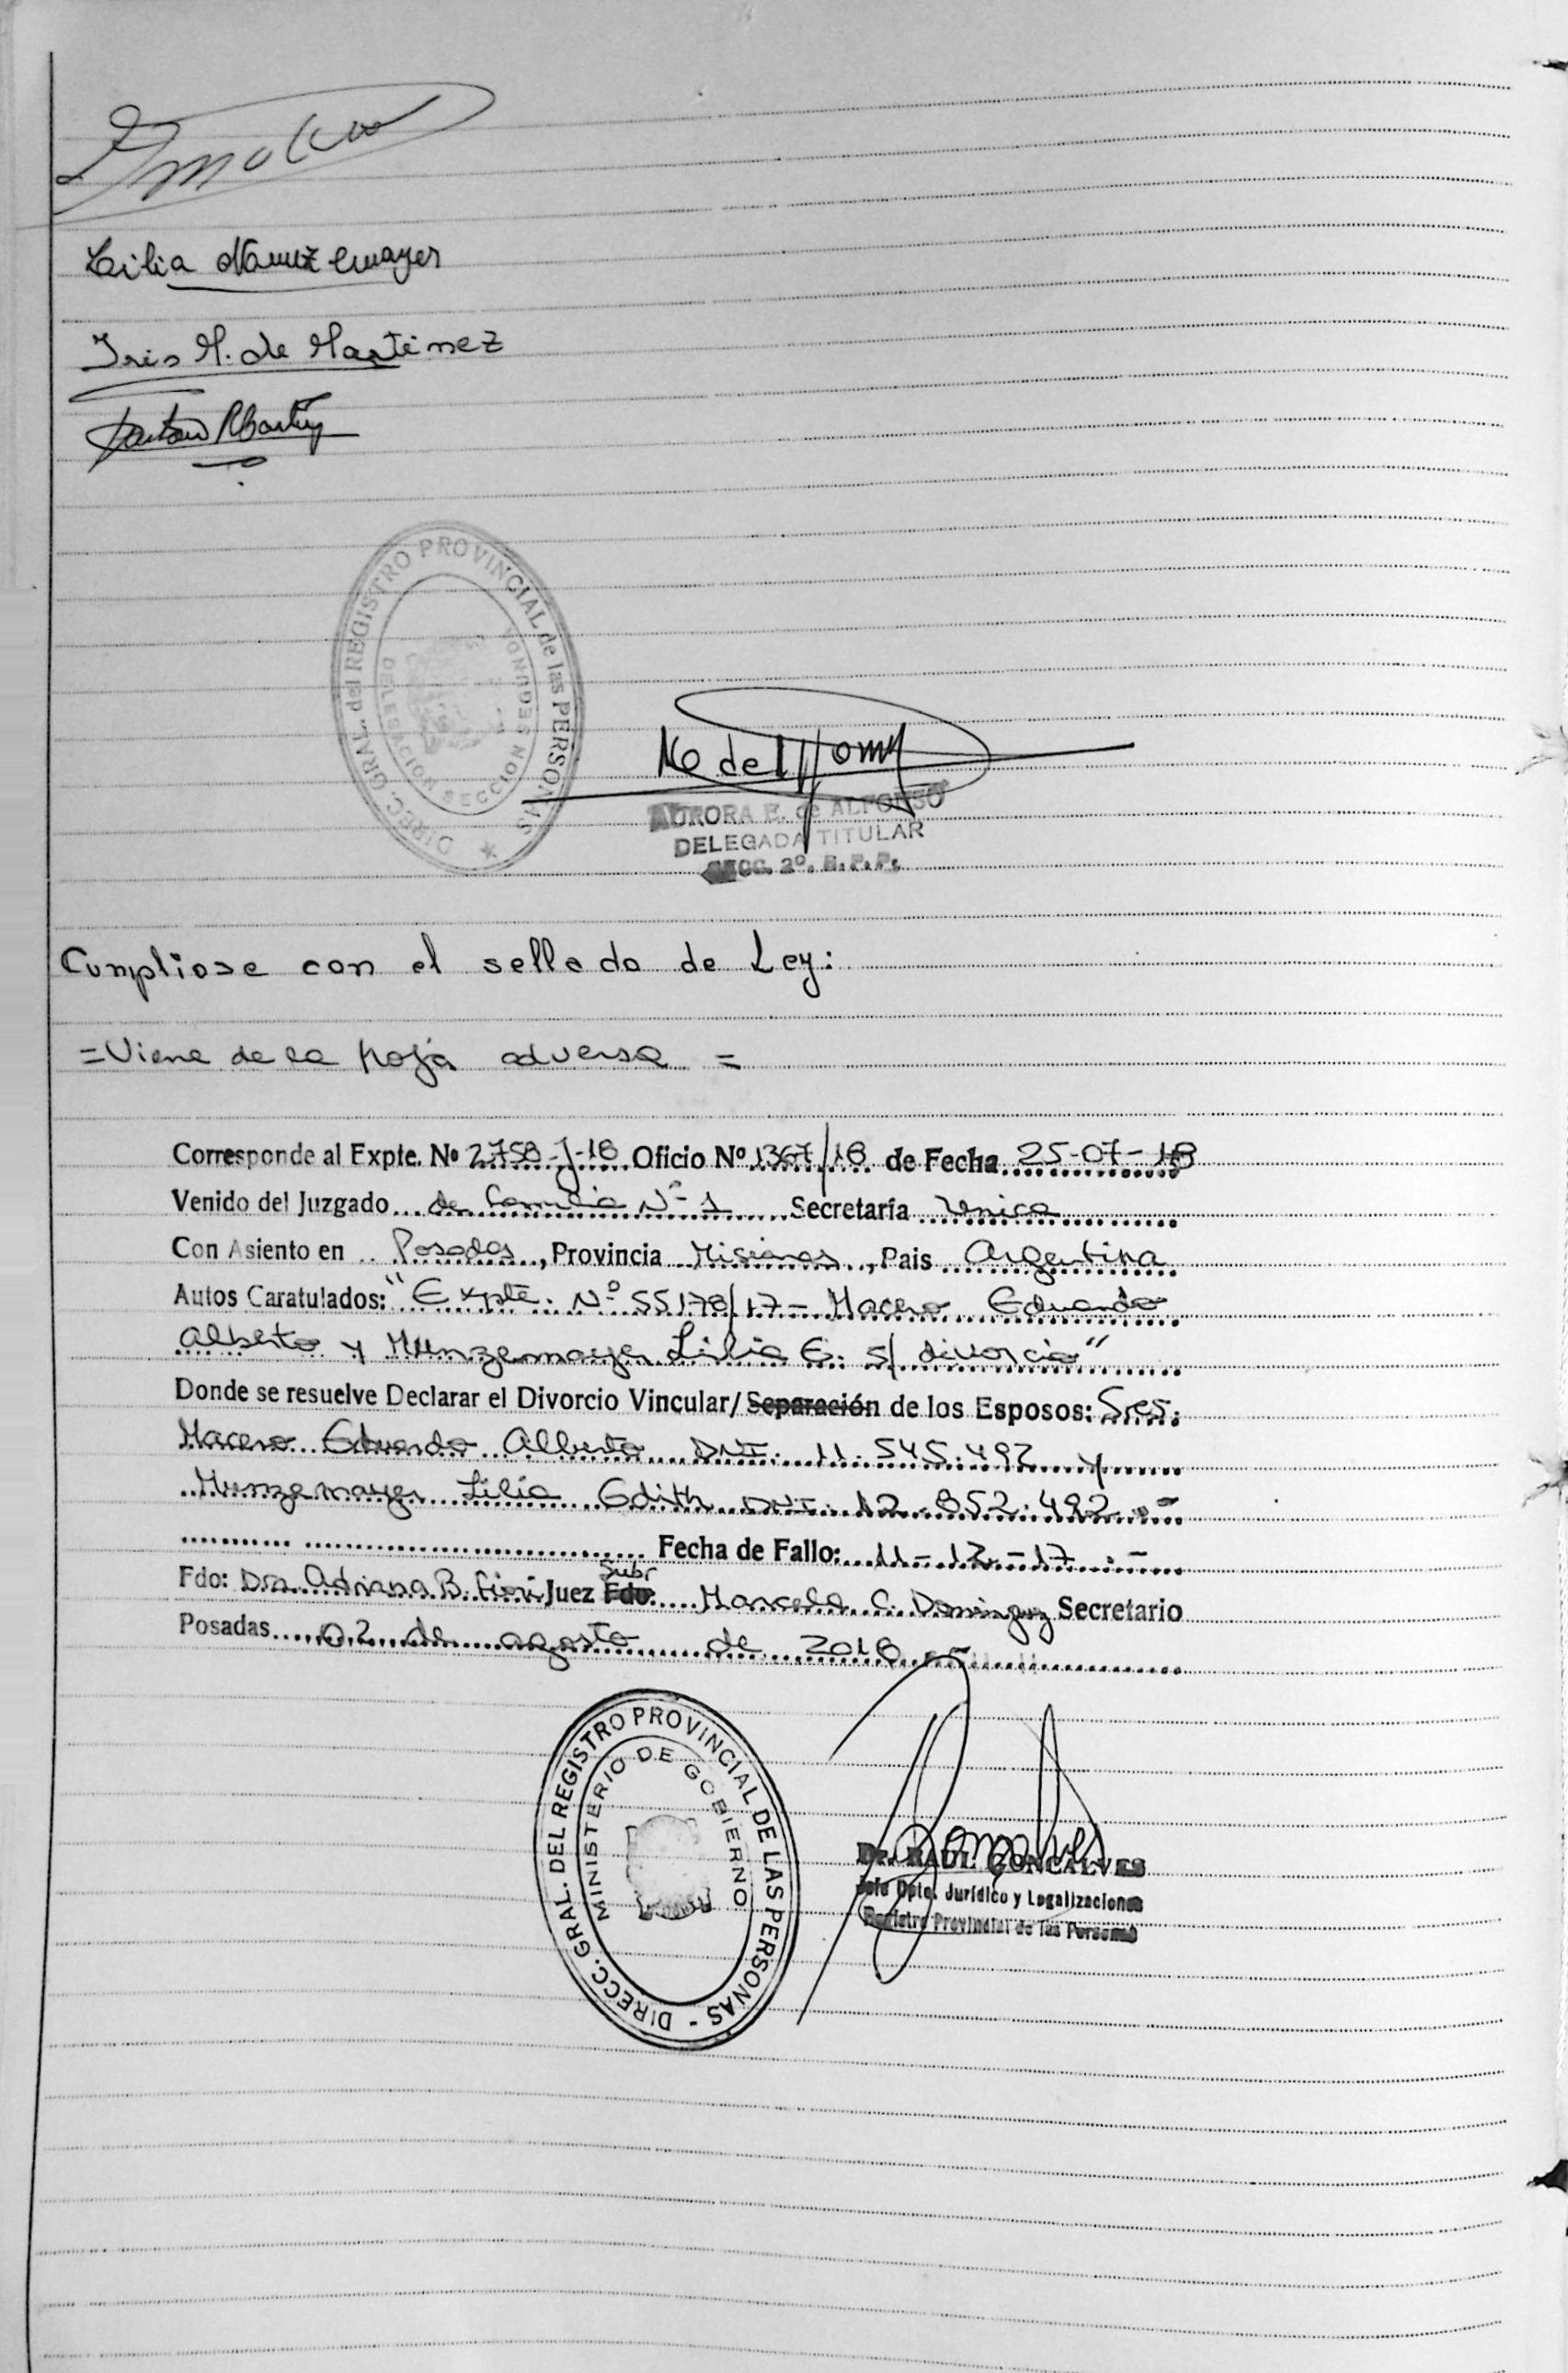 Lilia Munzemayer
Iris M. de Martinez
DIREC. GRAL. del REGISTRO PROVINCIAL de las PERSONAS
DELEGACION SECCION SEGUNDA
AURORA E. de ALFONSO
DELEGADA TITULAR
SECC. 2º. R.P.P.
Cumpliose con el sellado de Ley:
=Viene de la hoja adversa =
Corresponde al Expte. Nº 2758-J-18 Oficio Nº 1367/18 de Fecha 25-07-18
Venido del Juzgado de Familia Nº 1 Secretaría Unica
Con Asiento en Posadas, Provincia Misiones, Pais Argentina
Autos Caratulados: "Expte. Nº 55178/17- Macero Eduardo
Alberto y Munzemayer Lilia E. s/ divorcio"
Donde se resuelve Declarar el Divorcio Vincular/ Separación de los Esposos: Sres.
Macero Eduardo Alberto DNI. 11.545.492 y
Munzemayer Lilia Edith DNI. 12.852.492.-
Fecha de Fallo: 11-12-17.-
Subr
Fdo: Dra. Adriana B. Fiori Juez Fdo: Marcela C. Dominguez Secretario
Posadas, 02 de agosto de 2018.-
DIRECC. GRAL. DEL REGISTRO PROVINCIAL DE LAS PERSONAS -
MINISTERIO DE GOBIERNO
Dr. RAUL GONCALVES
Jefe Dpto. Jurídico y Legalizaciones
Registro Provincial de las Personas